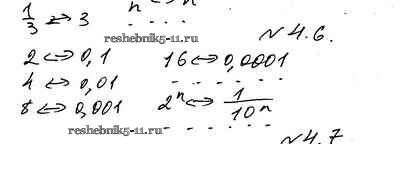 1/3 ⇔ 3
n ⇔ n
- - - -
reshebnik5-11.ru
№ 4.6.
2 ⇔ 0,1
16 ⇔ 0,0001
4 ⇔ 0,01
- - - - - -
8 ⇔ 0,001
2ⁿ ⇔ 1/10ⁿ
reshebnik5-11.ru
- - - - - -
№ 4.7